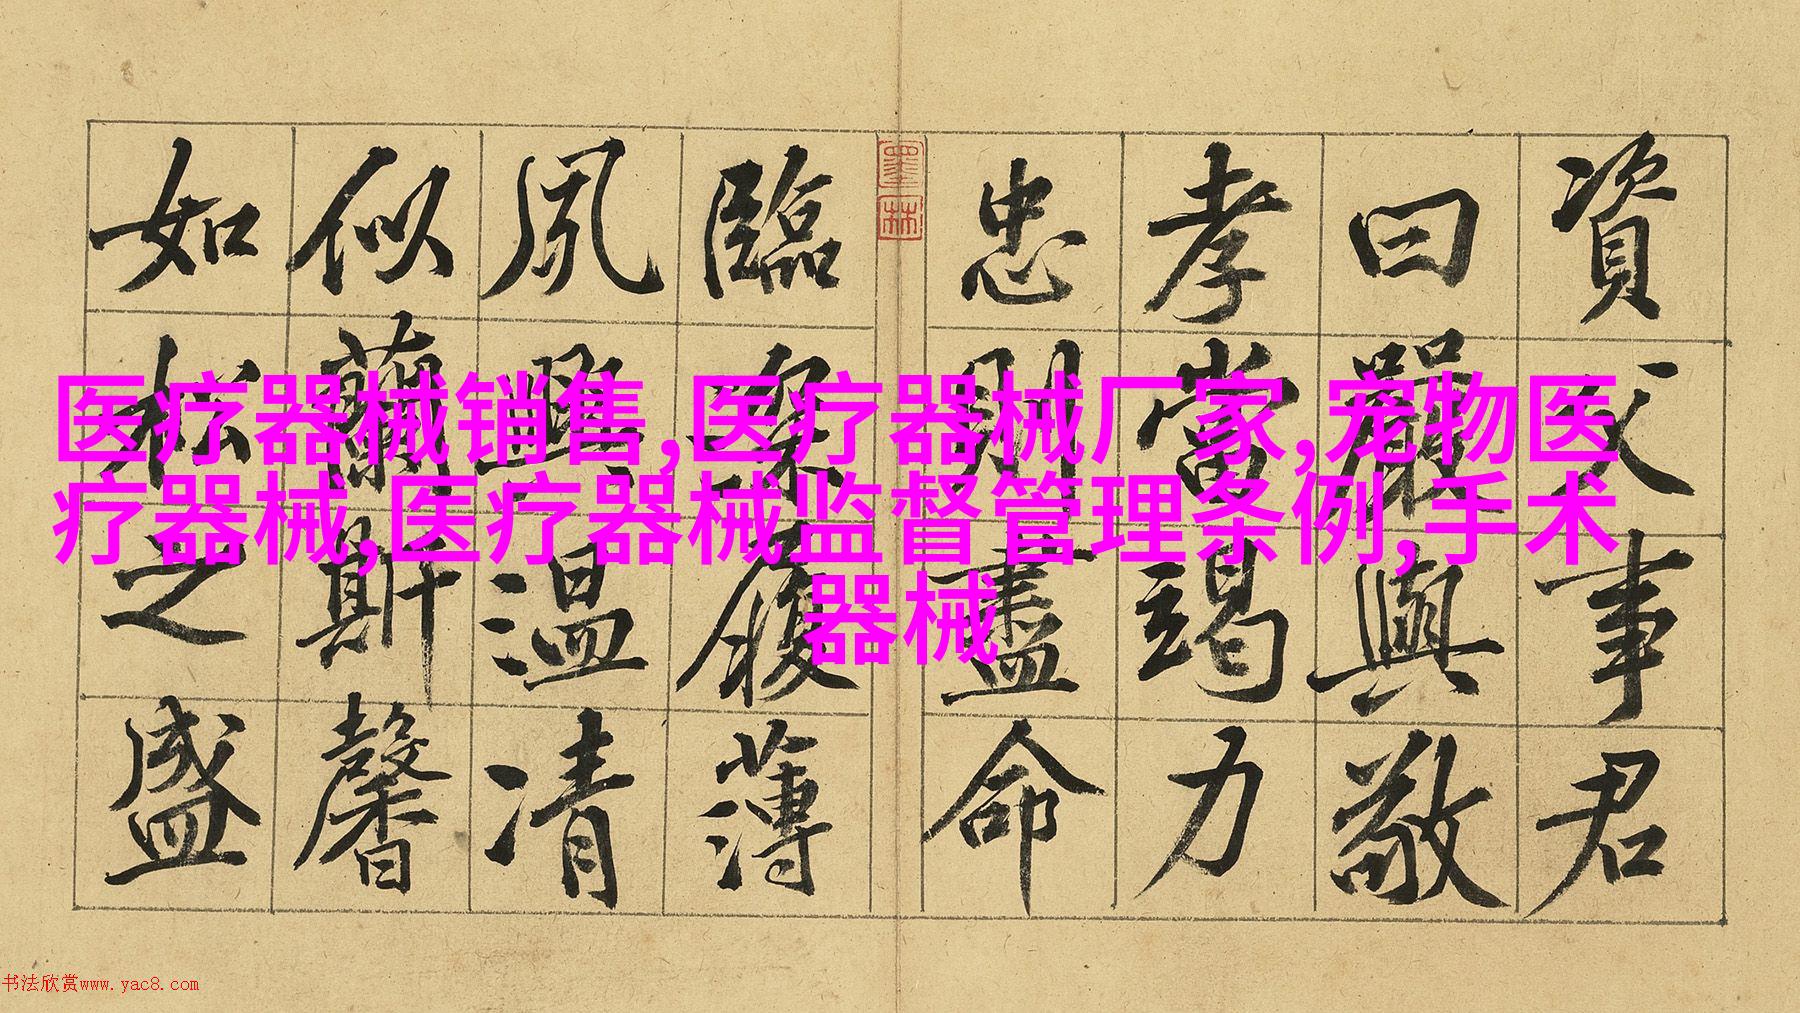 資父事君
曰嚴與敬
孝當竭力
忠則盡命
臨深履薄
夙興溫凊
似蘭斯馨
如松之盛
墨林
医疗器械销售,医疗器械厂家,宠物医
疗器械,医疗器械监督管理条例,手术
器械
书法欣赏www.yac8.com